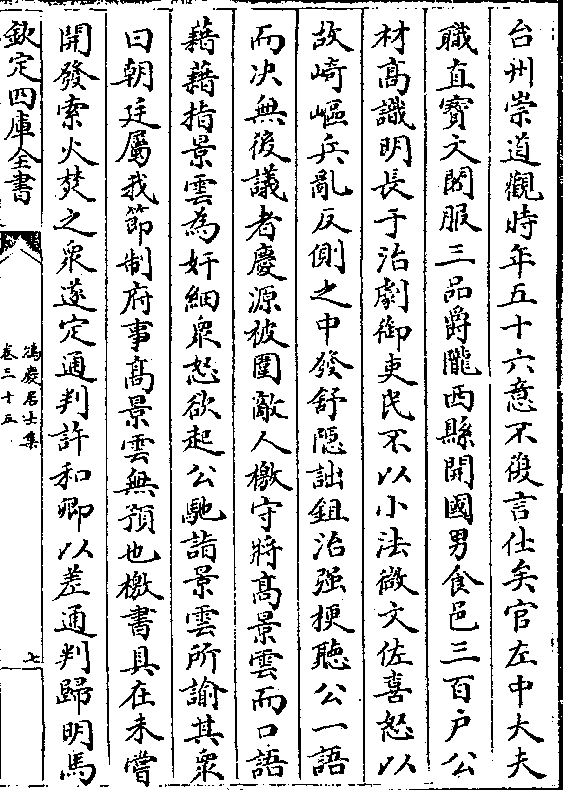 台州崇道觀時年五十六意不復言仕矣官左中大夫
職直寶文閣服三品爵隴西縣開國男食邑三百户公
材髙識明長于治劇御吏民不以小法微文佐喜怒以
故崎嶇兵亂反側之中發舒隱詘鉏治强梗聽公一語
而决無後議者慶源被圍敵人檄守將髙景雲而口語
藉藉指景雲為奸細衆怒欲起公馳詣景雲所諭其衆
曰朝廷屬我節制府事髙景雲無預也檄書具在未嘗
開發索火焚之衆遂定通判許和卿以差通判歸明馬
欽定四庫全書
鴻慶居士集
卷三十五
七